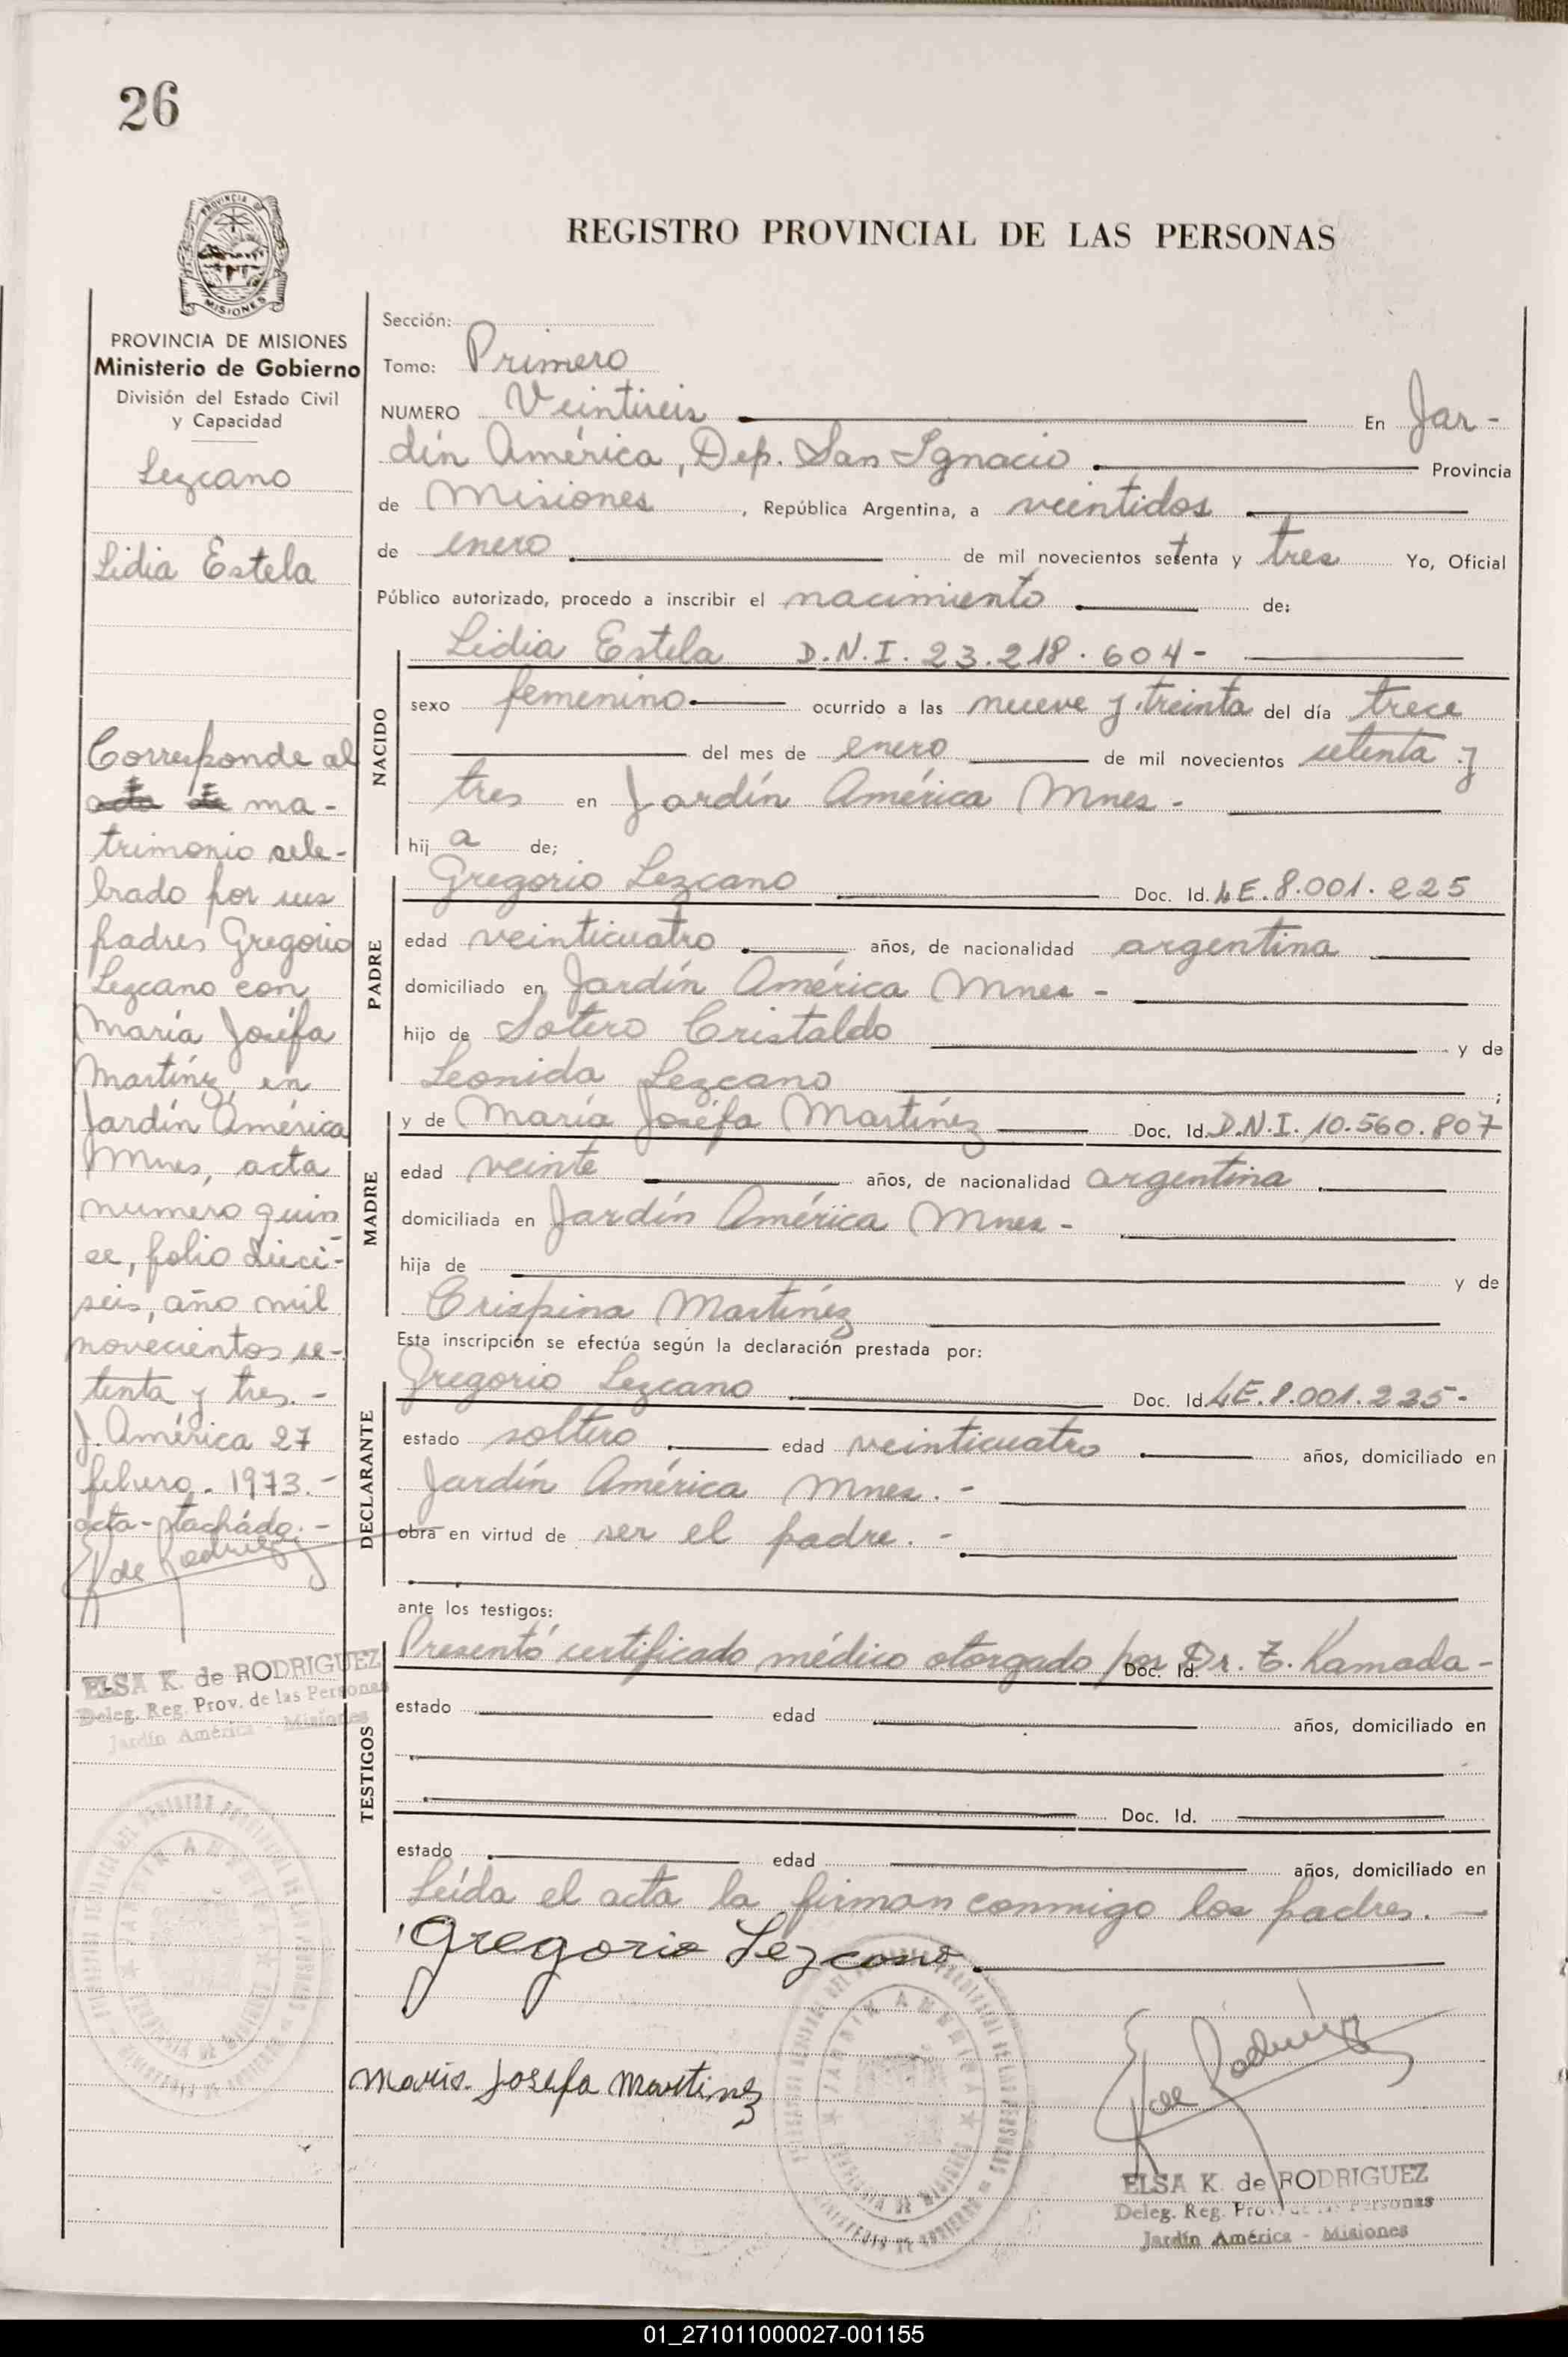 26
PROVINCIA DE
MISIONES
REGISTRO PROVINCIAL DE LAS PERSONAS
PROVINCIA DE MISIONES
Ministerio de Gobierno
División del Estado Civil
y Capacidad
Lezcano
Lidia Estela
Corresponde al
acta de ma-
trimonio cele-
brado por sus
padres Gregorio
Lezcano con
María Josefa
Martínez en
Jardín América
Mnes, acta
numero quin
ce, folio dieci-
seis, año mil
novecientos se-
tenta y tres. -
J. América 27
febrero - 1973. -
acta - tachado. -
E K de Rodriguez
ELSA K. de RODRIGUEZ
Deleg. Reg. Prov. de las Personas
Jardín América - Misiones
Sección:
Tomo: Primero
NUMERO Veintiseis En Jar-
dín América, Dep. San Ignacio Provincia
de Misiones, República Argentina, a veintidos
de enero de mil novecientos setenta y tres Yo, Oficial
Público autorizado, procedo a inscribir el nacimiento de:
Lidia Estela D.N.I. 23.218.604-
NACIDO
sexo femenino ocurrido a las nueve y treinta del día trece
del mes de enero de mil novecientos setenta y
tres en Jardín América Mnes -
hij a de;
PADRE
Gregorio Lezcano Doc. Id. LE. 8.001.225
edad veinticuatro años, de nacionalidad argentina
domiciliado en Jardín América Mnes -
hijo de Sotero Cristaldo y de
Leonida Lezcano ;
MADRE
y de María Josefa Martínez Doc. Id. D.N.I. 10.560.807
edad veinte años, de nacionalidad argentina
domiciliada en Jardín América Mnes -
hija de y de
Crispina Martínez
Esta inscripción se efectúa según la declaración prestada por:
DECLARANTE
Gregorio Lezcano Doc. Id LE. 8.001.225-
estado soltero edad veinticuatro años, domiciliado en
Jardín América Mnes. -
obra en virtud de ser el padre. -
ante los testigos:
TESTIGOS
Presentó certificado médico otorgado por Dr. T. Kamada - Doc. Id.
estado edad años, domiciliado en
Doc. Id.
estado edad años, domiciliado en
Leída el acta la firman conmigo los padres. -
Gregorio Lezcano
Maria Josefa Martinez
E K de Rodriguez
JARDIN AMERICA
ELSA K. de RODRIGUEZ
Deleg. Reg. Prov. de las Personas
Jardín América - Misiones
01_271011000027-001155